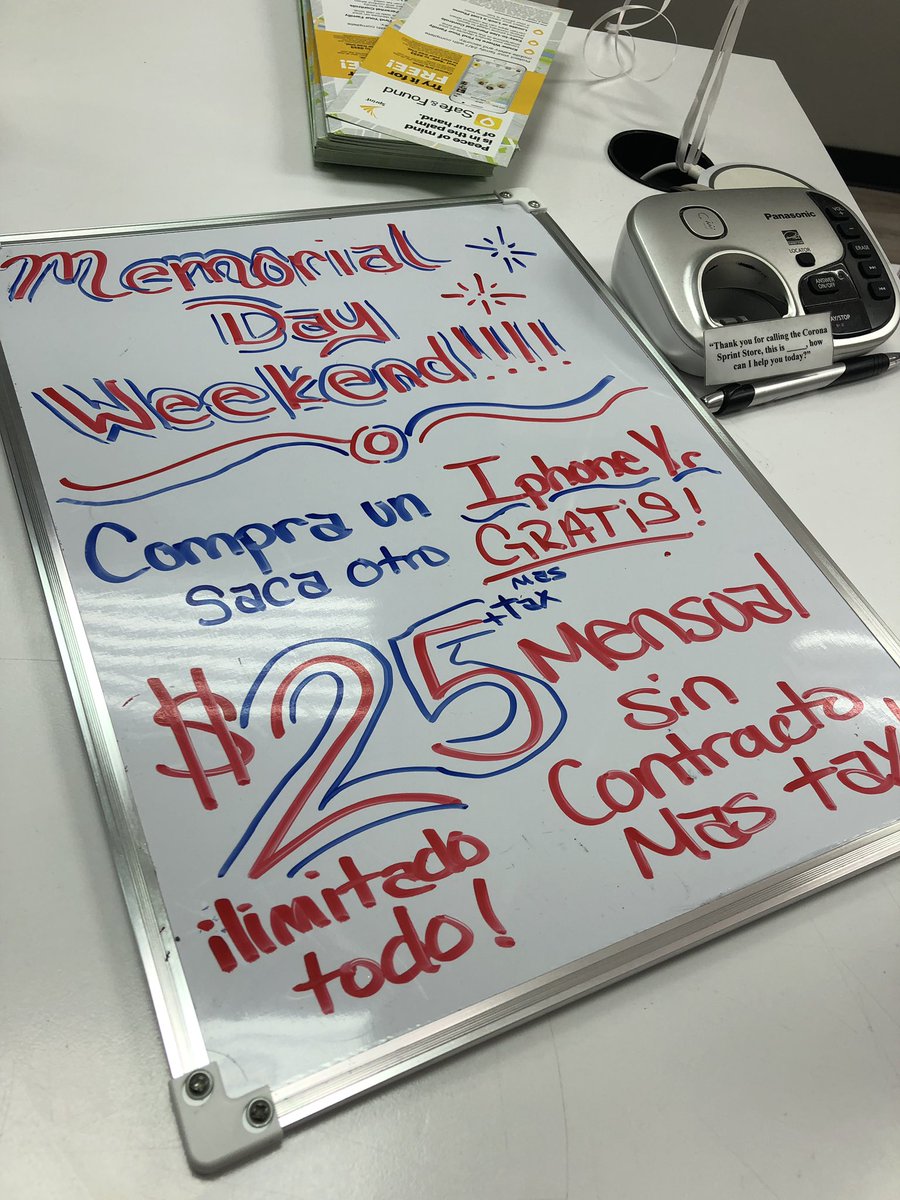 Memorial
Day
Weekend!!!!!
Compra un Iphone Xr
saca otro GRATIS!
$25 + tax mas
Mensual
sin
Contracto
Mas tax!
ilimitado
todo!
Peace of mind
is in the palm
of your hand.
Safe & Found
Try it for
FREE!
Sprint
Panasonic
LOCATOR
ERASE
ANSWER
ON/OFF
"Thank you for calling the Corona
Sprint Store, this is _____, how
can I help you today?"